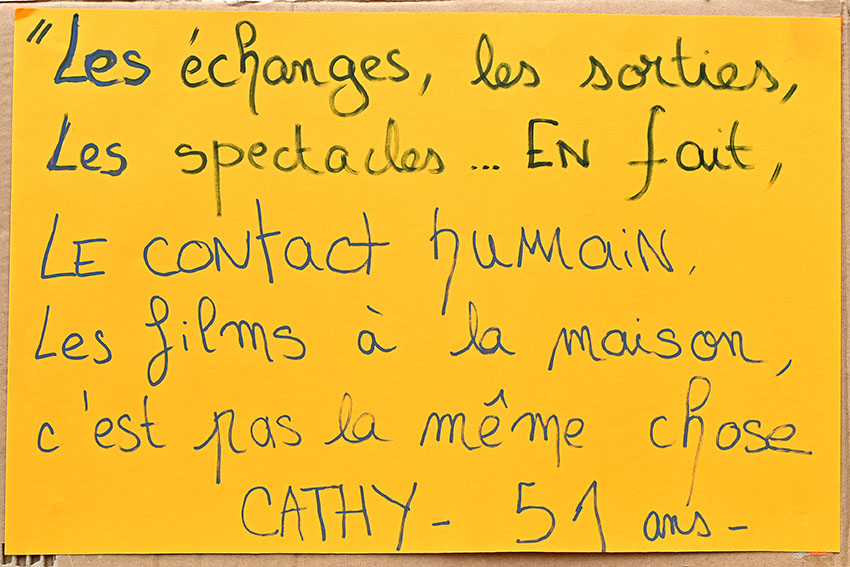 "Les échanges, les sorties,
Les spectacles... EN fait,
LE contact humain.
Les films à la maison,
c'est pas la même chose
CATHY - 51 ans -
"